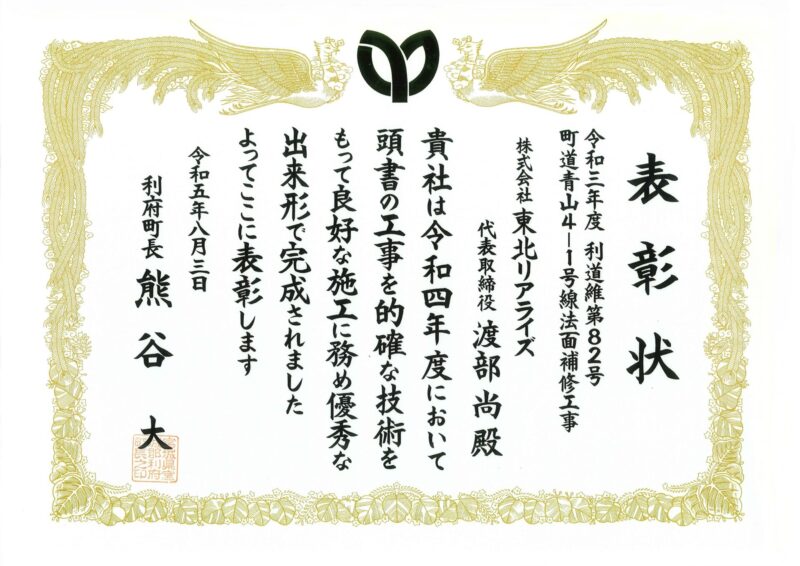 表彰状
令和三年度 利道維第82号
町道青山4−1号線法面補修工事
株式会社 東北リアライズ
代表取締役 渡部尚殿
貴社は令和四年度において
頭書の工事を的確な技術を
もって良好な施工に務め優秀な
出来形で完成されました
よってここに表彰します
令和五年八月三日
利府町長 熊谷 大